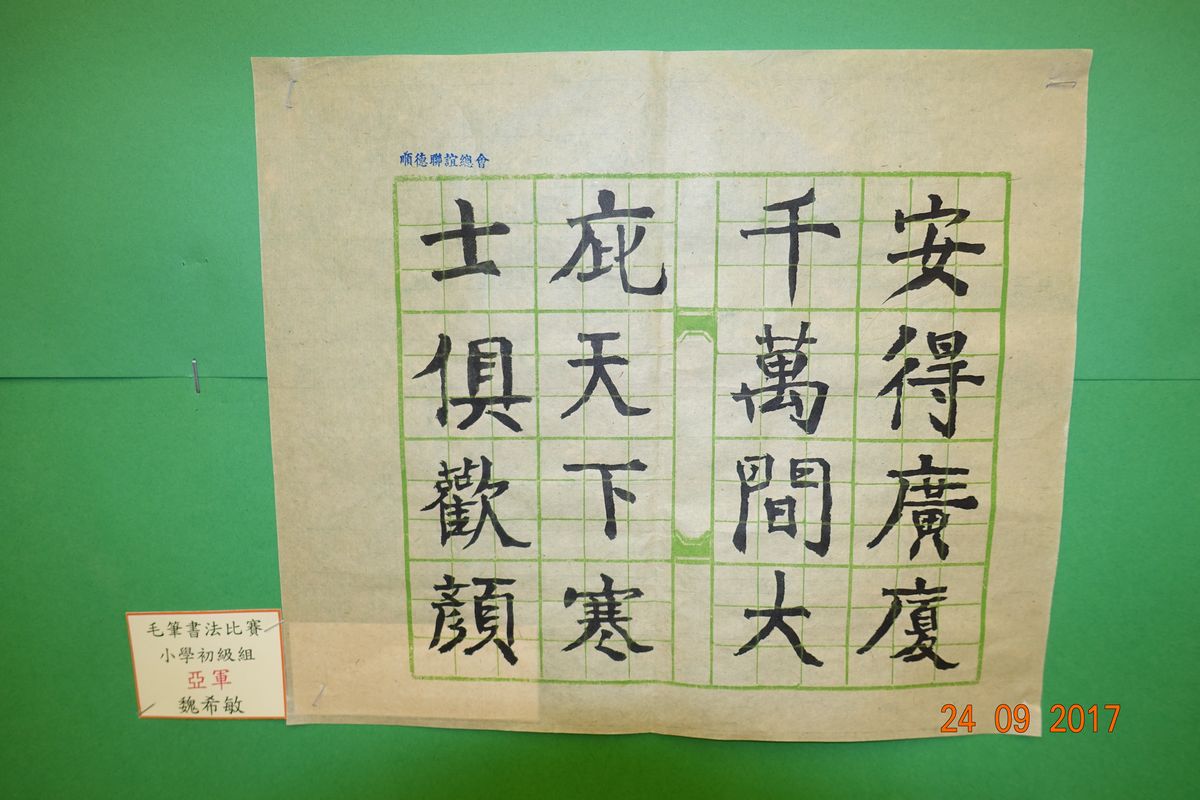 順德聯誼總會
安得廣廈
千萬間大
庇天下寒
士俱歡顏
毛筆書法比賽
小學初級組
亞軍
魏希敏
24 09 2017